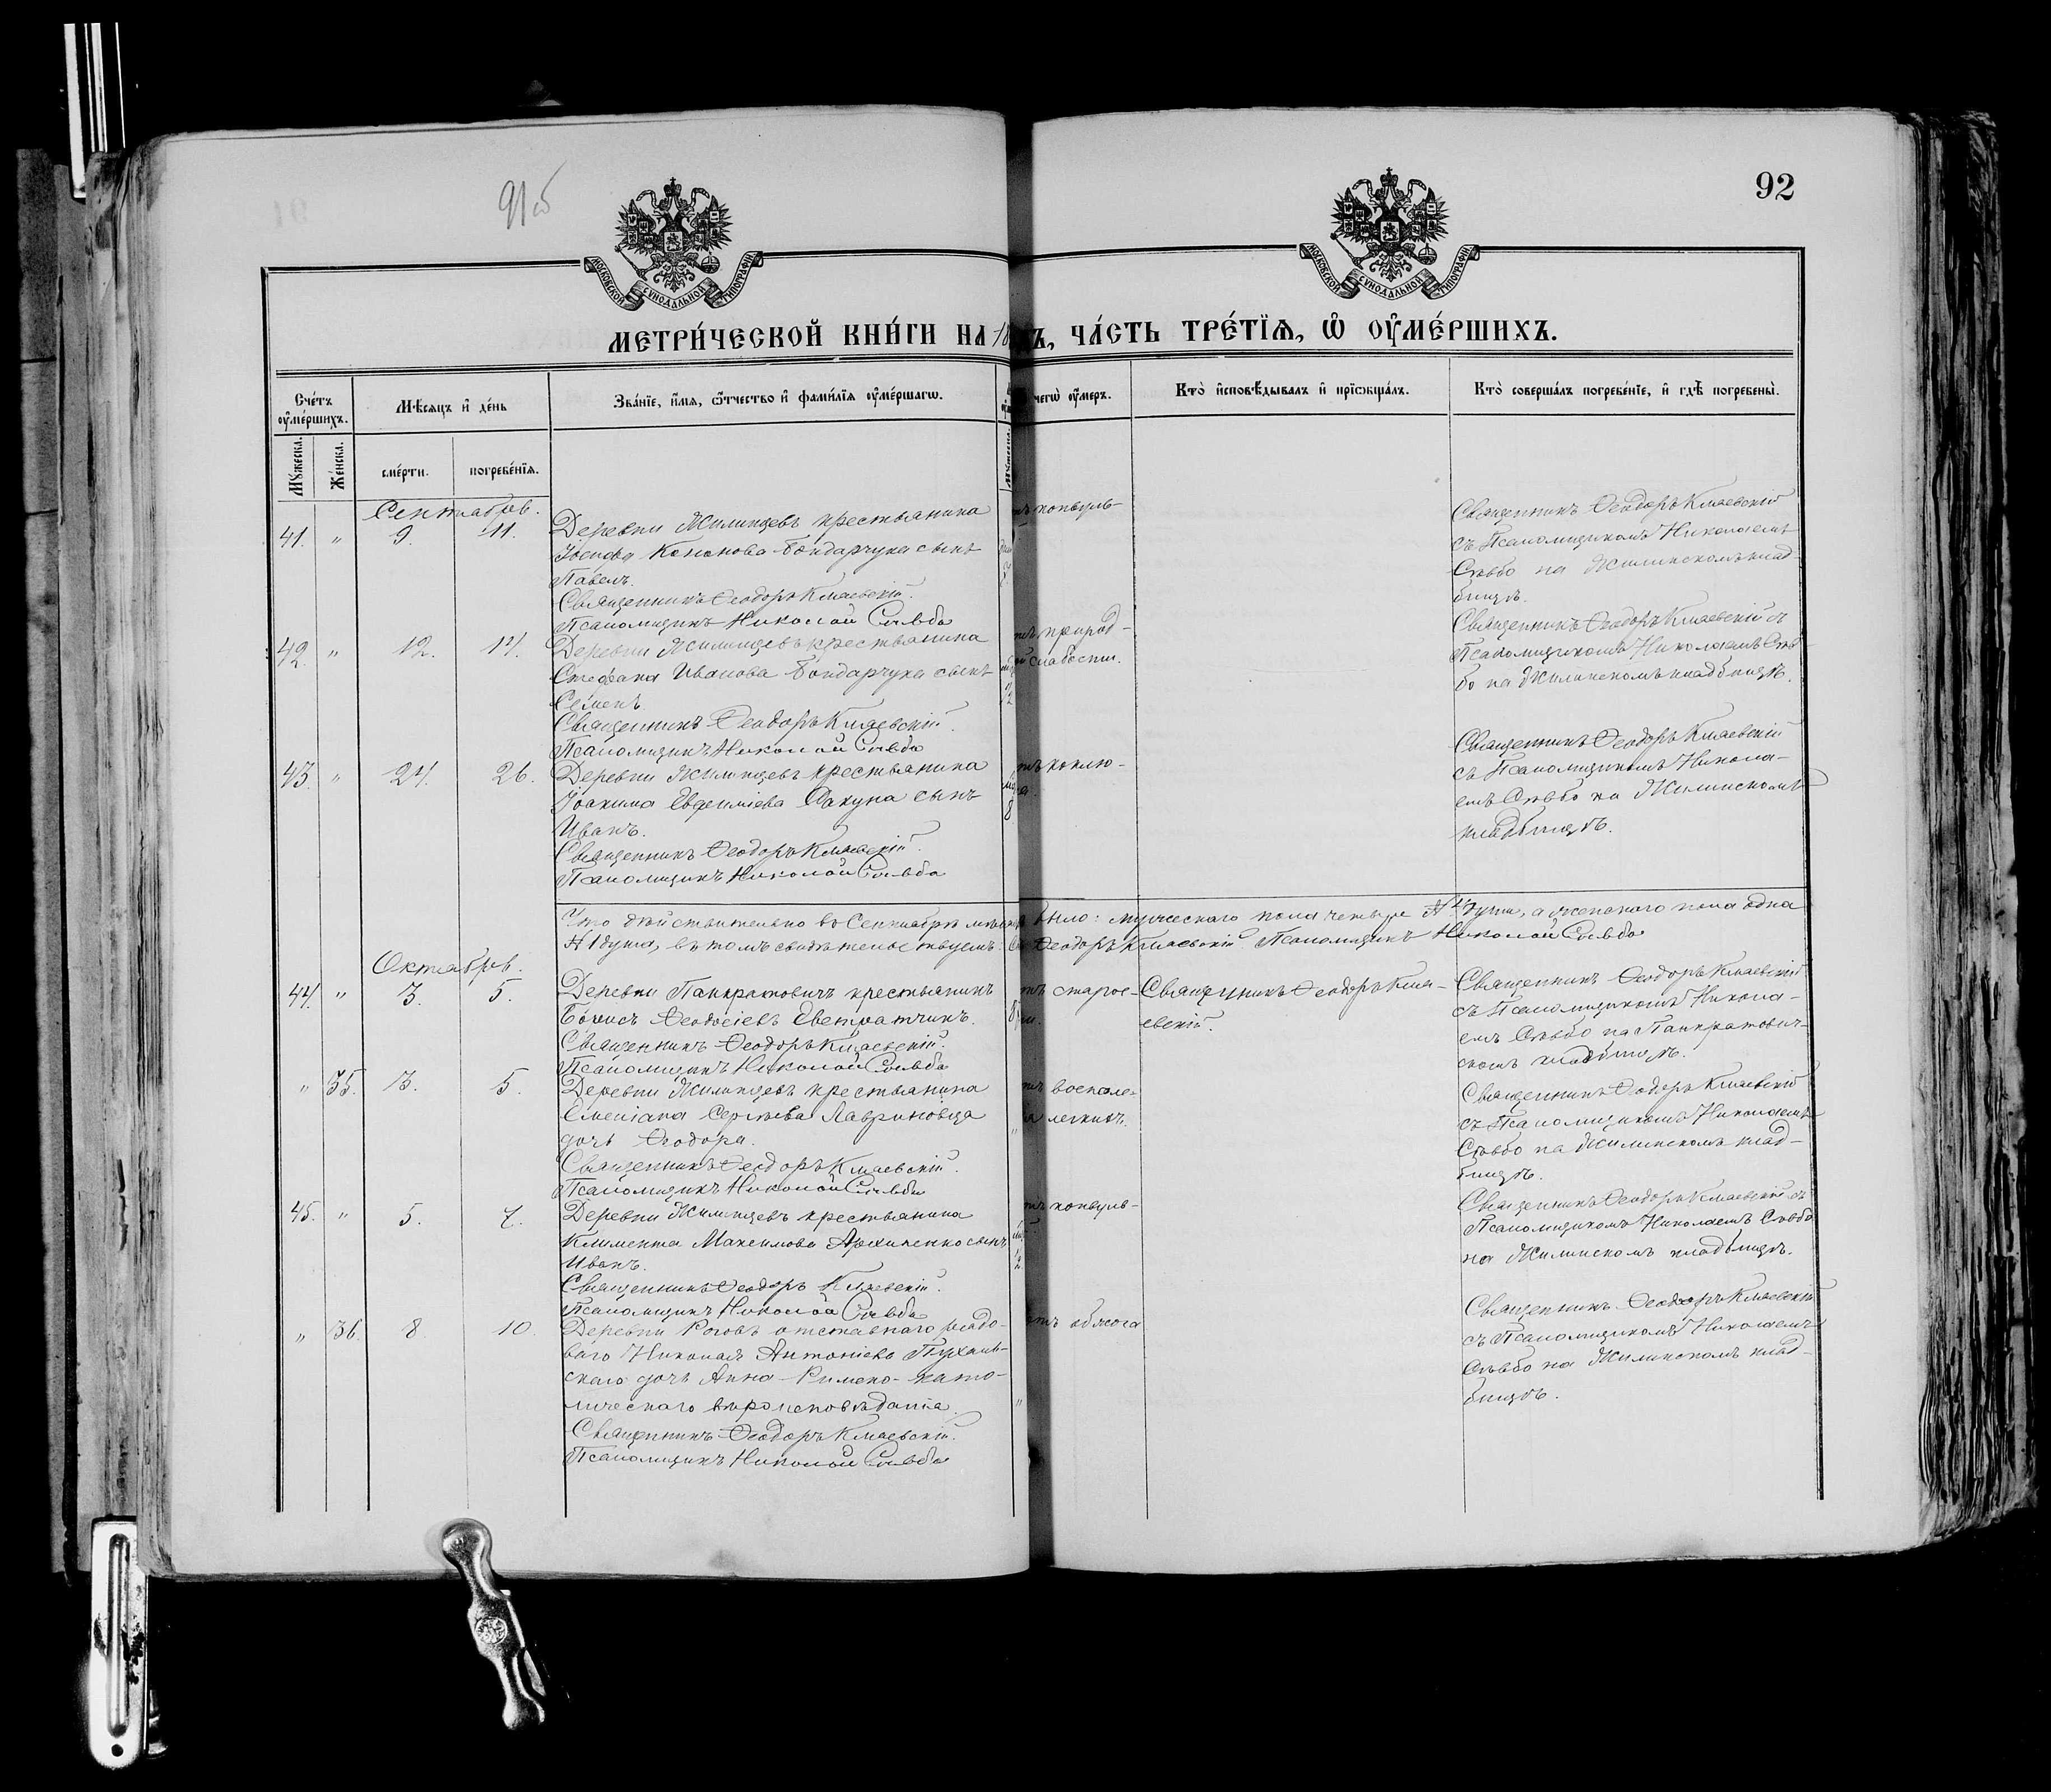 91 об
92
МОСКОВСКОЙ СѴНОДАЛЬНОЙ ТИПОГРАФІИ
МОСКОВСКОЙ СѴНОДАЛЬНОЙ ТИПОГРАФІИ
МЕТРИ́ЧЕСКОЙ КНИ́ГИ НА 18 ЧА́СТЬ ТРЕ́ТЇѦ, Ѡ҆ ОУ҆МЕ́РШИХЪ.
Сче́тъ оу҆ме́ршихъ.
Мѣ́сѧцъ и҆ де́нь
Зва́нїе, и҆́мѧ, ѻ҆́тчество и҆ фами́лїѧ оу҆ме́ршагѡ.
чегѡ̀ оу҆́меръ.
Кто̀ и҆сповѣ́дывалъ и҆ прїѡбща́лъ.
Кто̀ соверша́лъ погребе́нїе, и҆ гдѣ̀ погребены̀.
Мꙋ́жеска.
Же́нска.
сме́рти.
погребе́нїѧ.
Сентябрь.
41. " 9. 11. Деревни Жилинцевъ крестьянина
Іосифа Кононова Бондарчука сынъ
Павелъ.
Священникъ Ѳеодоръ Кмаевскій.
Псаломщикъ Николай Сѣвбо
конвуль-
Священникъ Ѳеодоръ Кмаевскій
съ Псаломщикомъ Николаемъ
Сѣвбо на Жилинскомъ клад-
бищѣ.
42. " 12. 14. Деревни Жилинцевъ крестьянина
Стефана Иванова Бондарчука сынъ
Семенъ
Священникъ Ѳеодоръ Кмаевскій.
Псаломщикъ Николай Сѣвбо
природ-
слабости.
Священникъ Ѳеодоръ Кмаевскій съ
Псаломщикомъ Николаемъ Сѣв-
бо на Жилинскомъ кладбищѣ.
43. " 24. 26. Деревни Жилинцевъ крестьянина
Іоакима Евѳиміева Факуна сынъ
Иванъ.
Священникъ Ѳеодоръ Кмаевскій.
Псаломщикъ Николай Сѣвбо
8
коклю-
Священникъ Ѳеодоръ Кмаевскій
съ Псаломщикомъ Никола-
емъ Сѣвбо на Жилинскомъ
кладбищѣ.
Что дѣйствительно въ Сентябрѣ мѣсяцѣ было: мужескаго пола четыре № 4 души, а женскаго пола одна
№ 1 душа, въ томъ свидѣтельствуемъ: Ѳеодоръ Кмаевскій. Псаломщикъ Николай Сѣвбо
Октябрь.
44. " 3. 5. Деревни Панкратовичъ крестьянинъ
Борисъ Ѳеодосіевъ Евстратчикъ.
Священникъ Ѳеодоръ Кмаевскій.
Псаломщикъ Николай Сѣвбо
старос-
Священникъ Ѳеодоръ Кма-
евскій.
Священникъ Ѳеодоръ Кмаевскій
съ Псаломщикомъ Никола-
емъ Сѣвбо на Панкратович-
скомъ кладбищѣ.
" 35. 3. 5. Деревни Жилинцевъ крестьянина
Емеліана Сергѣева Лавриновца
дочь Ѳеодора.
Священникъ Ѳеодоръ Кмаевскій.
Псаломщикъ Николай Сѣвбо
воспале-
легкихъ.
Священникъ Ѳеодоръ Кмаевскій
съ Псаломщикомъ Николаемъ
Сѣвбо на Жилинскомъ клад-
бищѣ.
45. " 5. 7. Деревни Жилинцевъ крестьянина
Климента Максимова Архипенко сынъ
Иванъ.
Священникъ Ѳеодоръ Кмаевскій.
Псаломщикъ Николай Сѣвбо
конвуль-
Священникъ Ѳеодоръ Кмаевскій съ
Псаломщикомъ Николаемъ Сѣвбо
на Жилинскомъ кладбищѣ.
" 36. 8. 10. Деревни Роговъ отставнаго рядо-
ваго Николая Антоніева Пухаль-
скаго дочь Анна Римско-като-
лическаго вѣроисповѣданія.
Священникъ Ѳеодоръ Кмаевскій.
Псаломщикъ Николай Сѣвбо
отъ обжога
Священникъ Ѳеодоръ Кмаевскій
съ Псаломщикомъ Николаемъ
Сѣвбо на Жилинскомъ клад-
бищѣ.